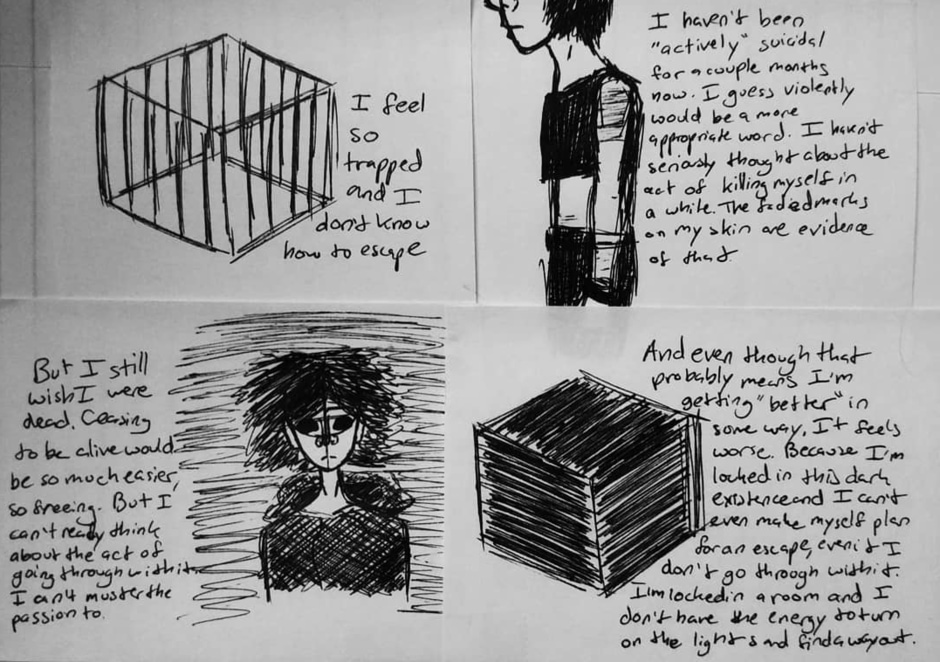 I feel
so
trapped
and I
don't know
how to escape
I haven't been
"actively" suicidal
for a couple months
now. I guess violently
would be a more
appropriate word. I haven't
seriously thought about the
act of killing myself in
a while. The faded marks
on my skin are evidence
of that.
But I still
wish I were
dead. Ceasing
to be alive would
be so much easier,
so freeing. But I
can't really think
about the act of
going through with it.
I can't muster the
passion to.
And even though that
probably means I'm
getting "better" in
some way, It feels
worse. Because I'm
locked in this dark
existence and I can't
even make myself plan
for an escape, even if I
don't go through with it.
I'm locked in a room and I
don't have the energy to turn
on the lights and find a way out.